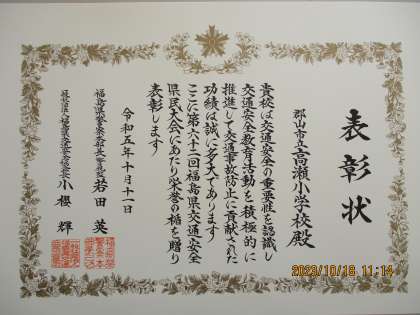 表彰状
郡山市立高瀬小学校殿
貴校は交通安全の重要性を認識し
交通安全教育活動を積極的に
推進して交通事故防止に貢献された
功績は誠に多大であります
ここに第六十二回福島県交通安全
県民大会にあたり栄誉の楯を贈り
表彰します
令和五年十月十一日
福島県警察本部長警視長 若田 英
小櫻 輝
2023/10/18 11:14